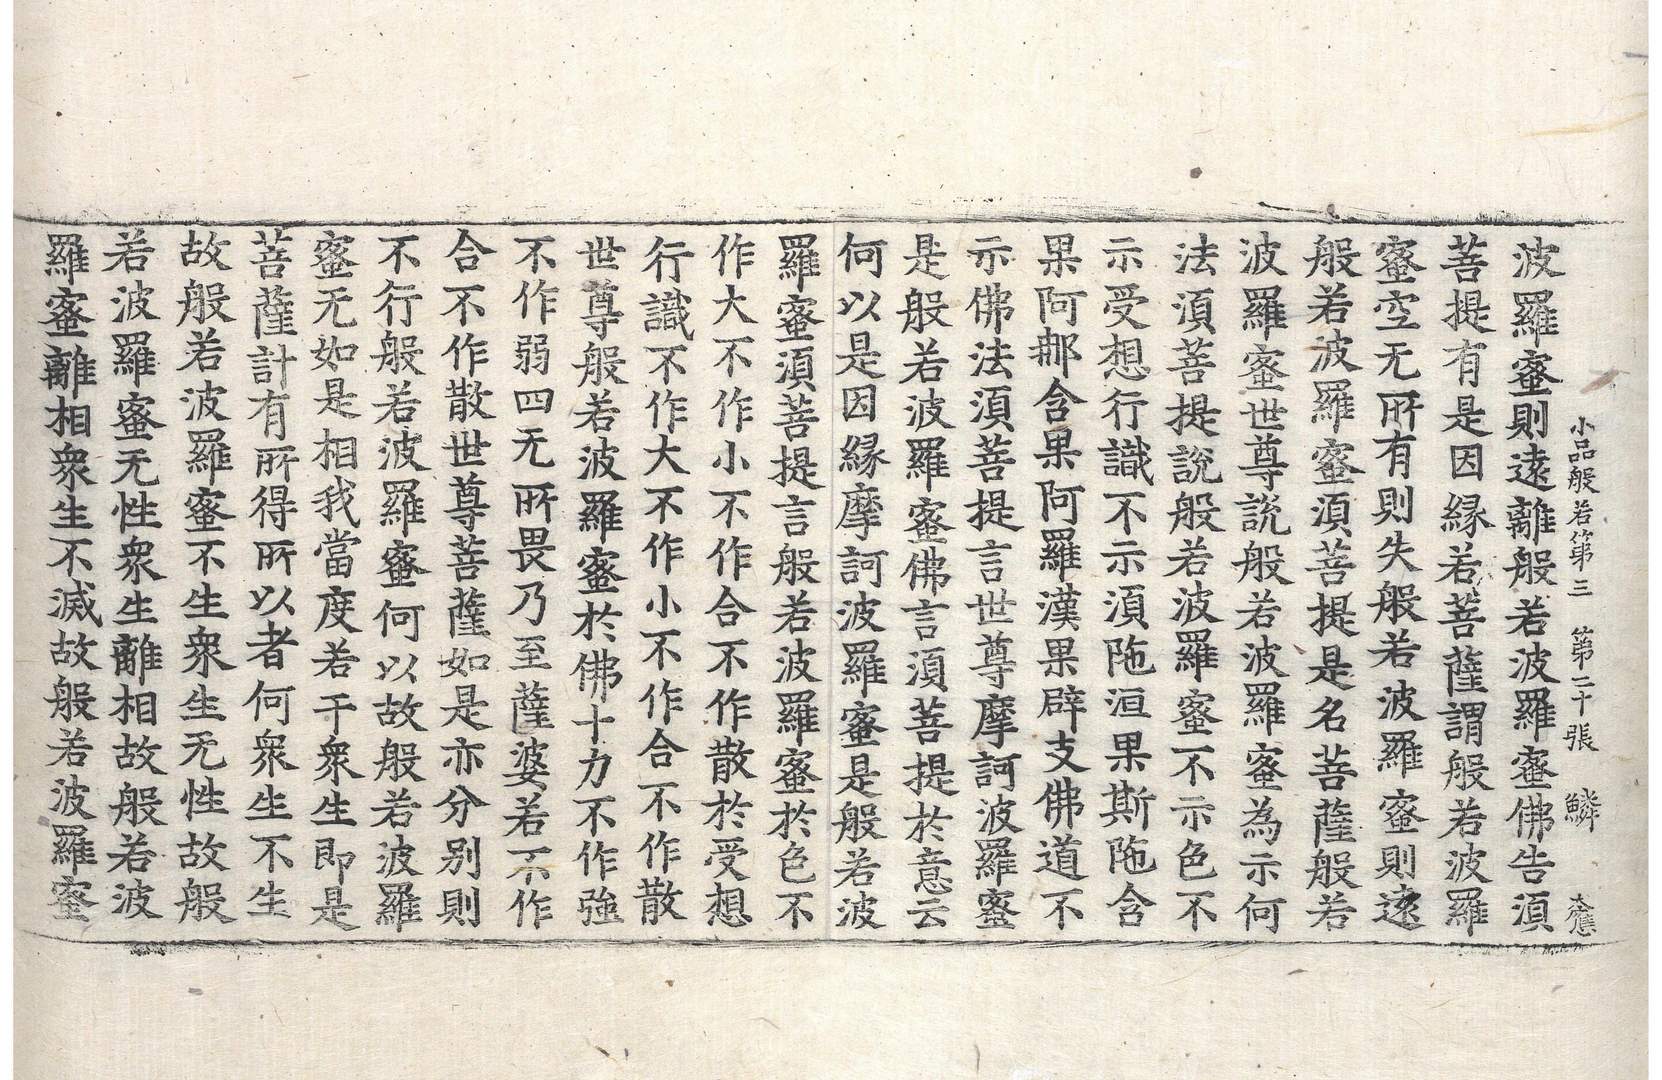 小品般若第三　第二十張　鱗　大應
波羅蜜則遠離般若波羅蜜佛告湏
菩提有是因縁若菩薩謂般若波羅
蜜空无所有則失般若波羅蜜則逺
般若波羅蜜湏菩提是名菩薩般若
波羅蜜世尊說般若波羅蜜為示何
法湏菩提說般若波羅蜜不示色不
示受想行識不示湏陁洹果斯陁含
果阿那含果阿羅漢果辟支佛道不
示佛法湏菩提言世尊摩訶波羅蜜
是般若波羅蜜佛言湏菩提於意云
何以是因縁摩訶波羅蜜是般若波
羅蜜湏菩提言般若波羅蜜於色不
作大不作小不作合不作散於受想
行識不作大不作小不作合不作散
世尊般若波羅蜜於佛十力不作強
不作弱四无所畏乃至薩婆若不作
合不作散世尊菩薩如是亦分別則
不行般若波羅蜜何以故般若波羅
蜜无如是相我當度若干衆生即是
菩薩計有所得所以者何衆生不生
故般若波羅蜜不生衆生无性故般
若波羅蜜无性衆生離相故般若波
羅蜜離相衆生不滅故般若波羅蜜